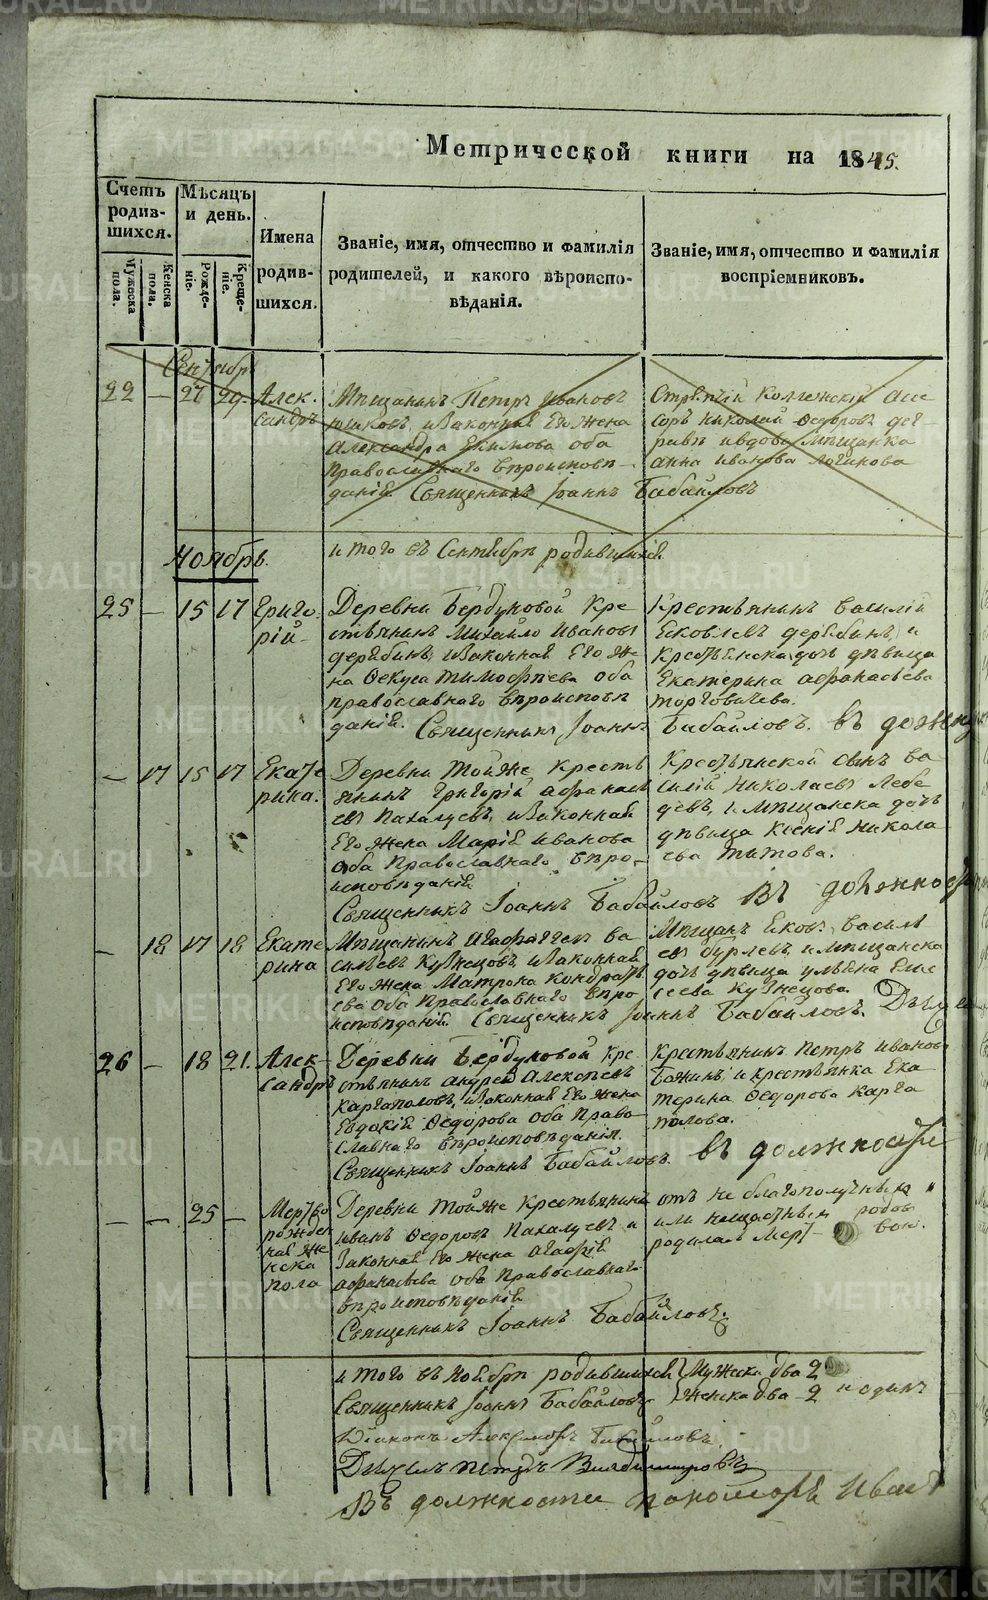 METRIKI.GASO-URAL.RU
Метрической книги на 1845.
Счетъ родив-шихся.
Мѣсяцъ и день.
Имена родив-шихся.
Званіе, имя, отчество и фамилія родителей, и какого вѣроиспо-вѣданія.
Званіе, имя, отчество и фамилія воспріемниковъ.
Мужеска пола.
Женска пола.
Рожде-ніе.
Креще-ніе.
Сентябрь
22 — 27 29. Алек-
сандръ
Мѣщанинъ Петръ Ивановъ
и законная его жена
Александра Екимова оба
православнаго вѣроисповѣ-
данія. Священникъ Іоаннъ Бабайловъ
Стряпчій Коллежскій Асе
соръ Николай Федоровъ
и вдова мѣщанка
Анна Иванова Логинова
итого въ Сентябрѣ родившихся
Ноябрь.
25 — 15 17 Григо-
рій
Деревни Бердуковой Кре
стьянинъ Михайло Ивановъ
дерябинъ, и законная его же
на Фекуса Тимофѣева оба
православнаго вѣроисповѣ
данія. Священникъ Іоаннъ Бабайловъ. въ должн
Крестьянинъ Василій
Яковлевъ дерябинъ, и
крестьянская дочь дѣвица
Екатерина Афанасьева
Торговичева.
— 17 15 17 Екате
рина.
Деревни тойже кресть
янинъ Григорій Афанась
евъ Пахалуевъ, и законная
его жена Марія Иванова
оба Православнаго вѣро-
исповѣданія
Священникъ Іоаннъ Бабайловъ Въ должнос
Крестьянской сынъ Ва
силій Николаевъ Лебе
девъ, и мѣщанска дочь
дѣвица Ксенія Никола
ева Титова.
— 18 17 18 Екате
рина
Мѣщанинъ Агафангелъ Ва
сильевъ Кузнецовъ, и законная
его жена Матрона Кондрать
ева оба Православнаго вѣро
исповѣданія. Священникъ Іоаннъ Бабайловъ. Дьяч
Мѣщан Яковъ Василь
евъ Бурлевъ, и мѣщанска
дочь дѣвица Ульяна Ели
сеева Кузнецова.
26 — 18 21. Алек-
сандръ
Деревни Бердуковой кре
стьянинъ Андрей Алексѣевъ
Каргаполовъ, и законная его жена
Евдокія Федорова оба Право
славнаго вѣроисповѣданія.
Священникъ Іоаннъ Бабайловъ. въ должности
Крестьянинъ Петръ Ивановъ
Бажинъ, и крестьянка Ека
терина Федорова Карга
полова.
— — 25 — Мертво
рожден
ная же
нска
пола
Деревни тойже крестьянинъ
Иванъ Федоровъ Пахалуевъ и
законная его жена Агафія
Афанасьева оба Православнаго
вѣроисповѣданія
Священникъ Іоаннъ Бабайловъ.
отъ не благополучныхъ
или нещастныхъ родовъ
родилась мерт- вою.
итого въ Ноябрѣ родившихся Мужеска два 2
Священникъ Іоаннъ Бабайловъ Женска два 2 и одинъ
Діаконъ Александръ Бабайловъ
Дьячекъ Петръ Владимировъ
Въ должности пономаря Иван